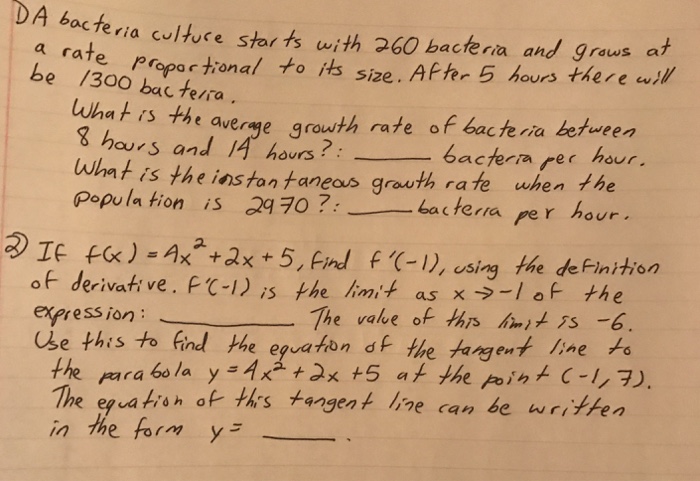 1) A bacteria culture starts with 260 bacteria and grows at
a rate proportional to its size. After 5 hours there will
be 1300 bacteria.
What is the average growth rate of bacteria between
8 hours and 14 hours?: ______ bacteria per hour.
What is the instantaneous growth rate when the
population is 2970?: ______ bacteria per hour.
2) If f(x) = 4x² + 2x + 5, find f'(-1), using the definition
of derivative. f'(-1) is the limit as x → -1 of the
expression: ______ The value of this limit is -6.
Use this to find the equation of the tangent line to
the parabola y = 4x² + 2x + 5 at the point (-1, 7).
The equation of this tangent line can be written
in the form y = ______.